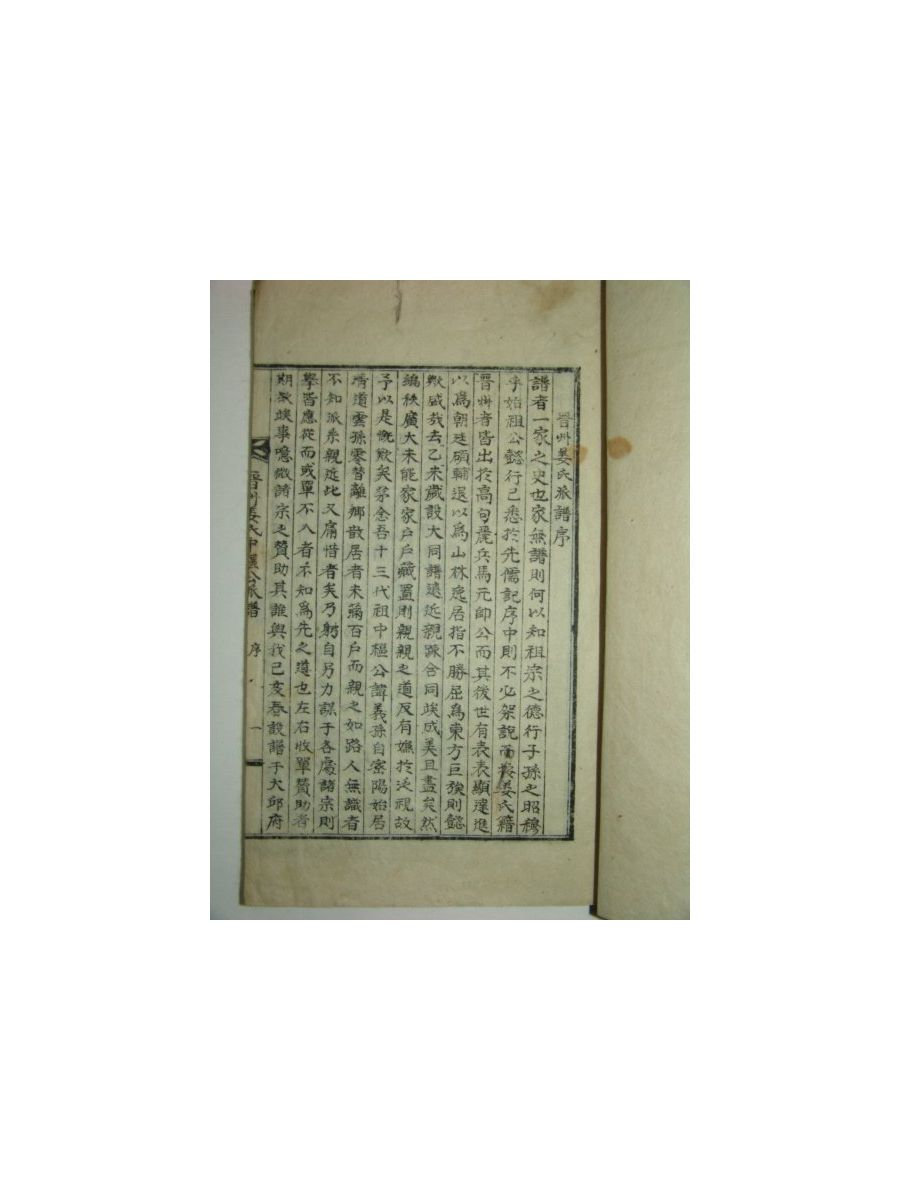 晋州姜氏派譜序
譜者一家之史也家無譜則何以知祖宗之德行子孫之昭穆
乎始祖公懿行已悉於先儒記序中則不必架說而我姜氏籍
晋州者皆出於高句麗兵馬元帥公而其後世有表表顯達進
以爲朝廷碩輔退以爲山林逸居指不勝屈爲東方巨族則懿
歟盛哉去乙未歲設大同譜遠近親疎合同竣成美且盡矣然
編秩廣大未能家家戶戶藏置則親親之道反有嫌於泛視故
予以是慨歎矣第念吾十三代祖中樞公諱義孫自密陽始居
清道雲孫零替離鄉散居者未滿百戶而親之如路人無識者
不知派系親近比又痛惜者矣乃躬自另力謀于各處諸宗則
擧皆應從而或單不入者不知爲先之道也左右收單贊助者
期歟竣事噫微諸宗之贊助其誰與我己亥春設譜于大邱府
晋州姜氏中樞公派譜 序 一